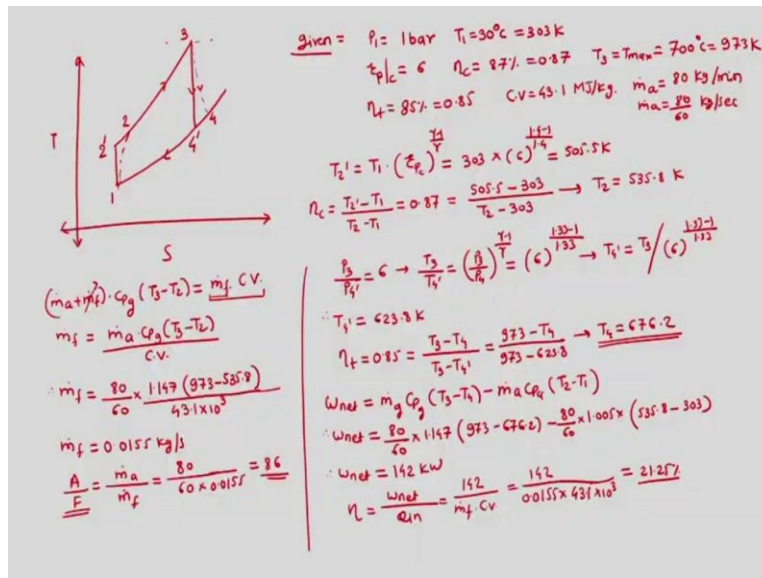 given = P1 = 1bar T1 = 30°C = 303K
εp/c = 6 ηc = 87% = 0.87 T3 = Tmax = 700°C = 973K
ηt = 85% = 0.85 C.V = 43.1 MJ/kg. ṁa = 80 kg/min
ṁa = 80/60 kg/sec
T
S
1
2
2'
3
4
4'
T2' = T1 · (εpc)^(γ-1/γ) = 303 × (6)^(1.4-1/1.4) = 505.5K
ηc = (T2' - T1)/(T2 - T1) = 0.87 = (505.5 - 303)/(T2 - 303) → T2 = 535.8 K
P3/P4' = 6 → T3/T4' = (P3/P4)^(γ-1/γ) = (6)^(1.33-1/1.33) → T4' = T3/(6)^(1.33-1/1.33)
∴ T4' = 623.8 K
ηt = 0.85 = (T3 - T4)/(T3 - T4') = (973 - T4)/(973 - 623.8) → T4 = 676.2
Wnet = ṁg Cpg (T3 - T4) - ṁa Cpa (T2 - T1)
∴ Wnet = 80/60 × 1.147 (973 - 676.2) - 80/60 × 1.005 × (535.8 - 303)
∴ Wnet = 142 kW
η = Wnet/Qin = 142/(ṁf · CV) = 142/(0.0155 × 43.1 × 10^3) = 21.25%
(ṁa + ṁf) · Cpg (T3 - T2) = ṁf · C.V.
mf = ṁa · Cpg (T3 - T2)/C.V.
∴ ṁf = 80/60 × 1.147 (973 - 535.8)/(43.1 × 10^3)
ṁf = 0.0155 kg/s
A/F = ṁa/ṁf = 80/(60 × 0.0155) = 86